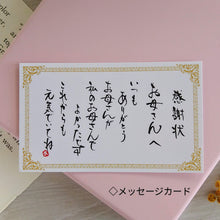 感謝状
お母さんへ
いつも
ありがとう
お母さんが
私のお母さんで
よかったです
これからも
元気でいてね
◇メッセージカード